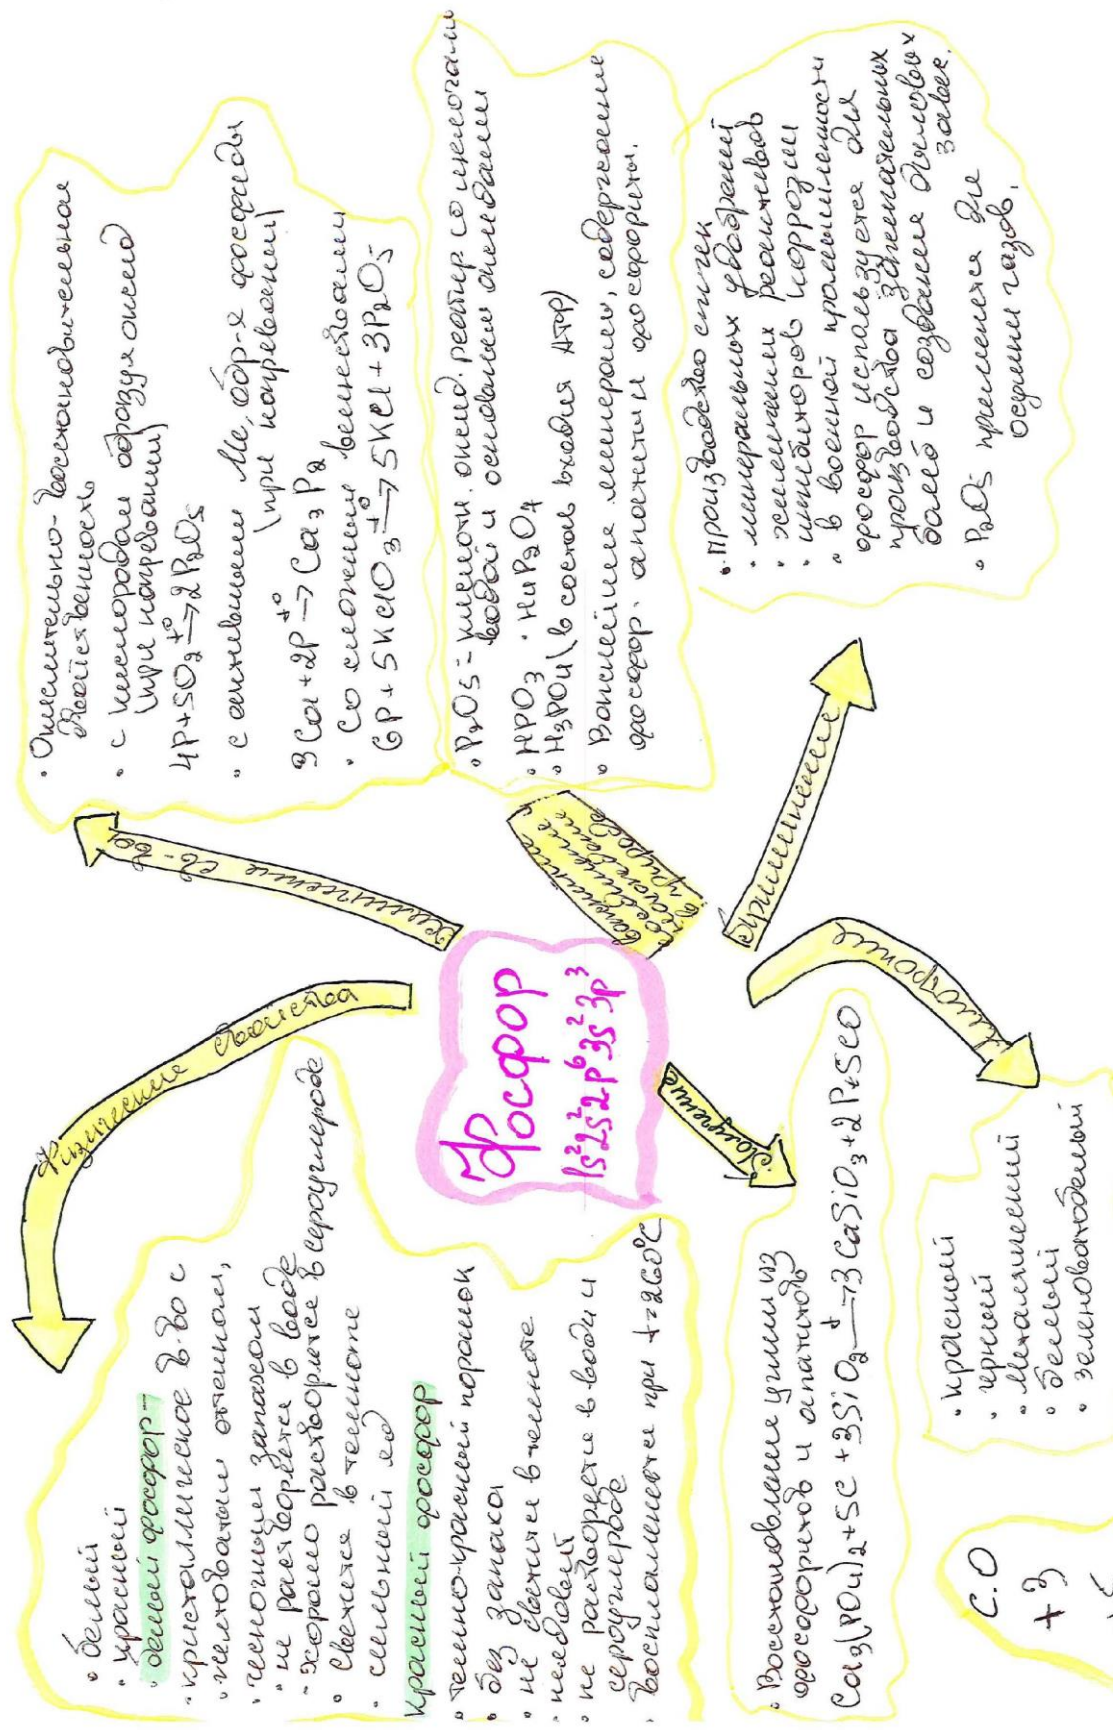 Фосфор
1s²2s²2p⁶3s²3p³
Физические свойства
• белый
• красный
белый фосфор –
• кристаллическое в-во с
• желтоватым оттенком,
• чесночным запахом
• не растворяется в воде
- хорошо растворяется в сероуглероде
• светится в темноте
• сильный яд
Красный фосфор
• темно-красный порошок
• без запаха
• не светится в темноте
• неядовит
• не растворяется в воде и
сероуглероде
• воспламеняется при t=260°C
Химические св-ва
• Окислительно-восстановительная
двойственность
• с кислородом образуя оксид
(при нагревании)
4P+5O₂ t°→ 2P₂O₅
• с активными Ме, обр-я фосфиды
(при нагревании)
3Ca+2P t°→ Ca₃P₂
• Со сложными веществами
6P+5KClO₃ t°→ 5KCl+3P₂O₅
важнейшие
в природе
• P₂O₅ – кислотн. оксид, реагир со щелочами
водой и основными оксидами
• HPO₃ • H₄P₂O₇
• H₃PO₄ (в состав входит АТФ)
• Важнейшие минералы, содержащие
фосфор. апатит и фосфориты.
Применение
• производство спичек
• минеральных удобрений
• химических реактивов
• ингибиторов коррозии
• в военной промышленности
фосфор используется для
производства зажигательных
и создания дымовых
завес.
• P₂O₅ применяется для
осушки газов.
Получение
• Восстановление углём из
фосфоритов и апатитов
Ca₃(PO₄)₂+5C+3SiO₂ t→ 3CaSiO₃+2P+5CO
аллотропия
• красный
• черный
• металлический
• белый
• зеленоватобелый
С.О
+3